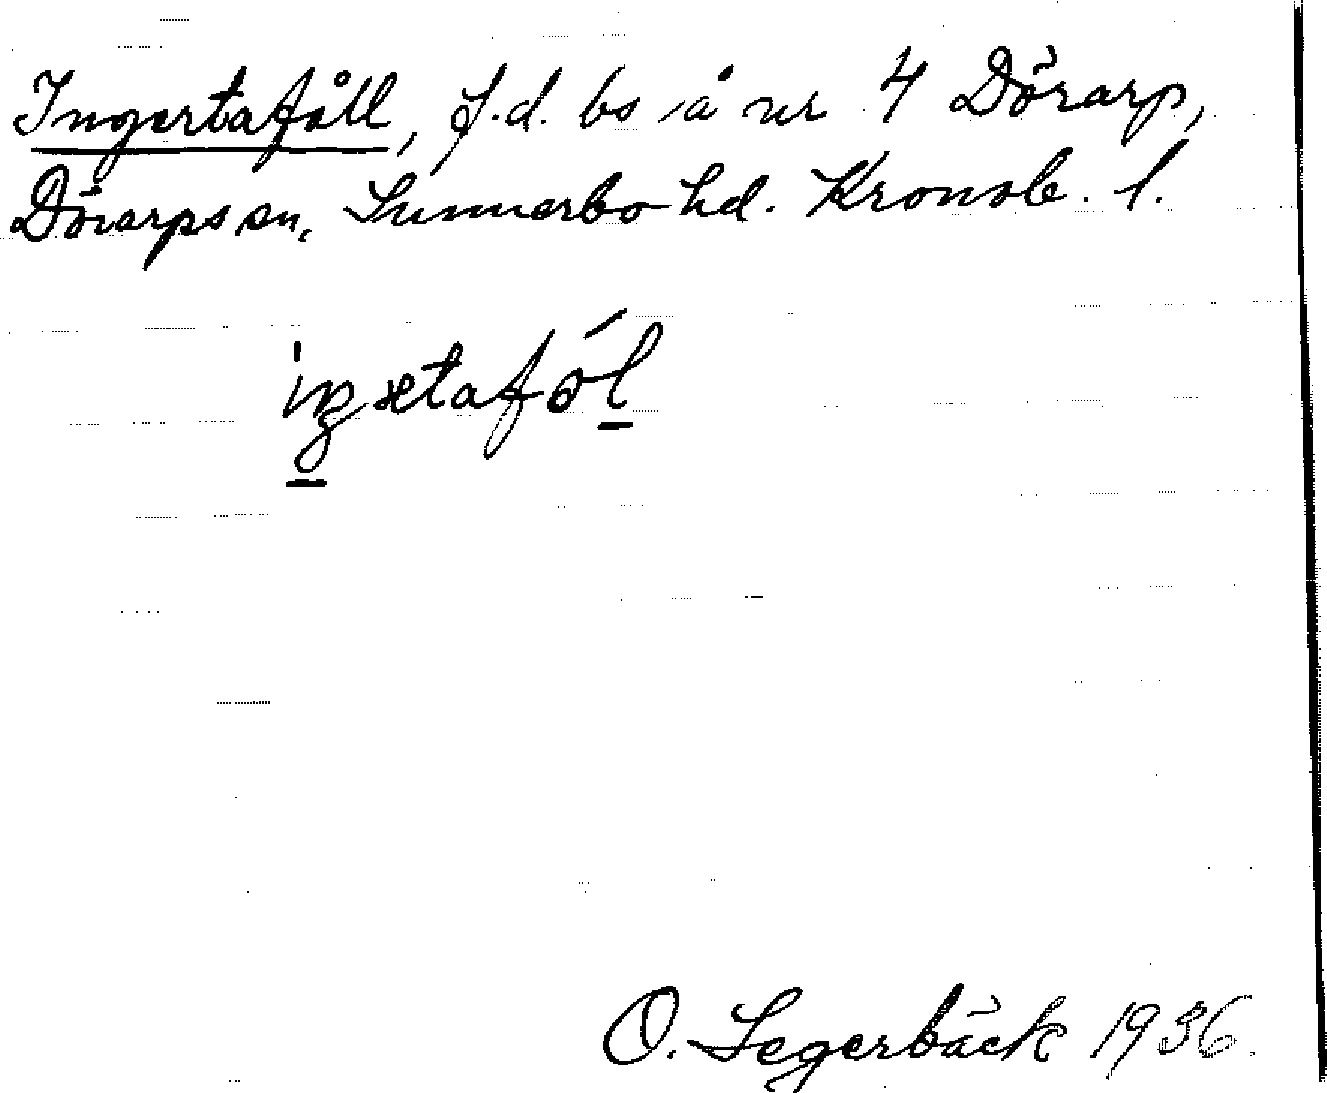 Ingertafåll, f.d. bs å nr 4 Dörarp,
Dörarps sn, Sunnerbo hd. Kronob. l.
O. Segerbäck 1936.